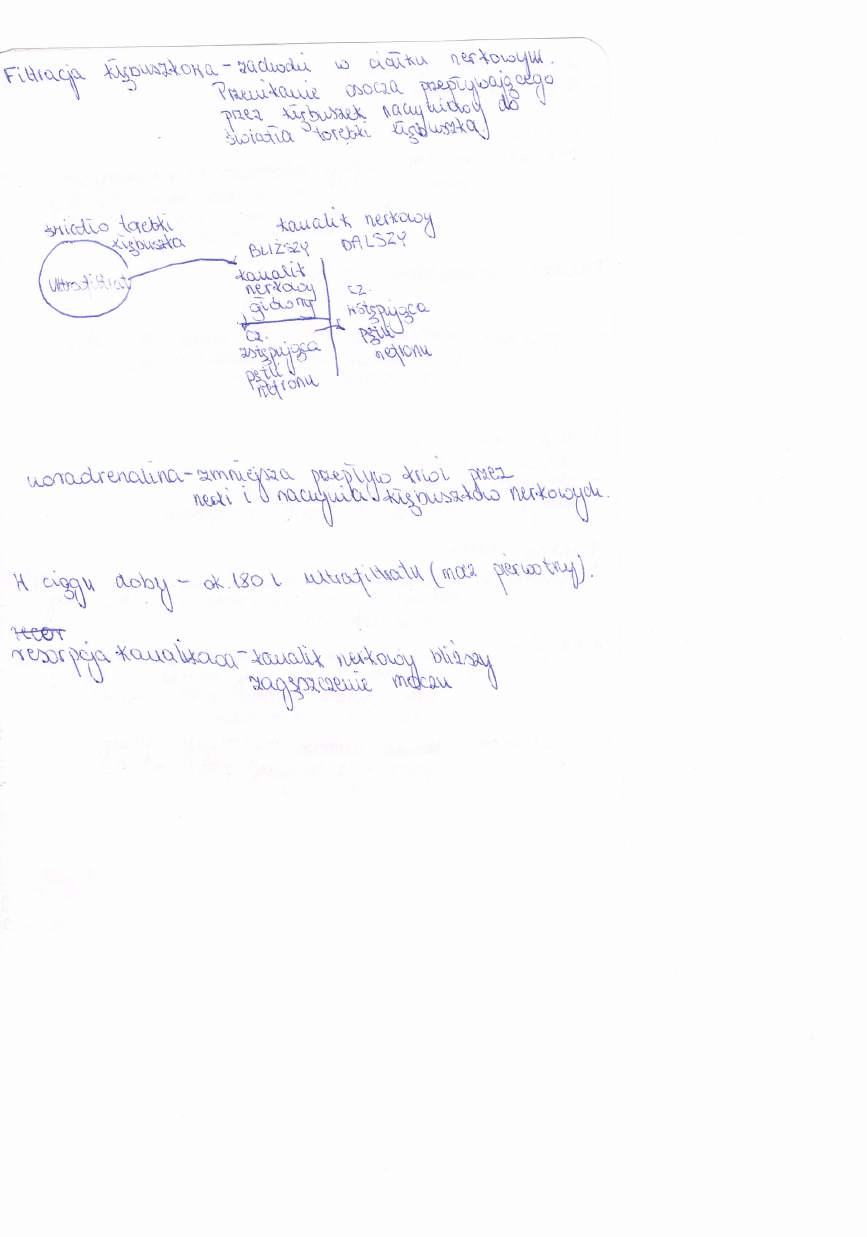 Filtracja kłębuszkowa - zachodzi w ciałku nerkowym.
Przenikanie osocza przepływającego
przez kłębuszek naczyniowy do
światła torebki kłębuszka.
światło torebki
kłębuszka
Ultrafiltrat
kanalik nerkowy
BLIŻSZY
DALSZY
kanalik
nerkowy
główny
cz.
zstępująca
pętli
nefronu
cz.
wstępująca
pętli
nefronu
noradrenalina - zmniejsza przepływ krwi przez
nerki i naczynia kłębuszków nerkowych.
W ciągu doby - ok. 180 l ultrafiltratu (mocz pierwotny).
resorpcja kanalikowa - kanalik nerkowy bliższy
zagęszczenie moczu